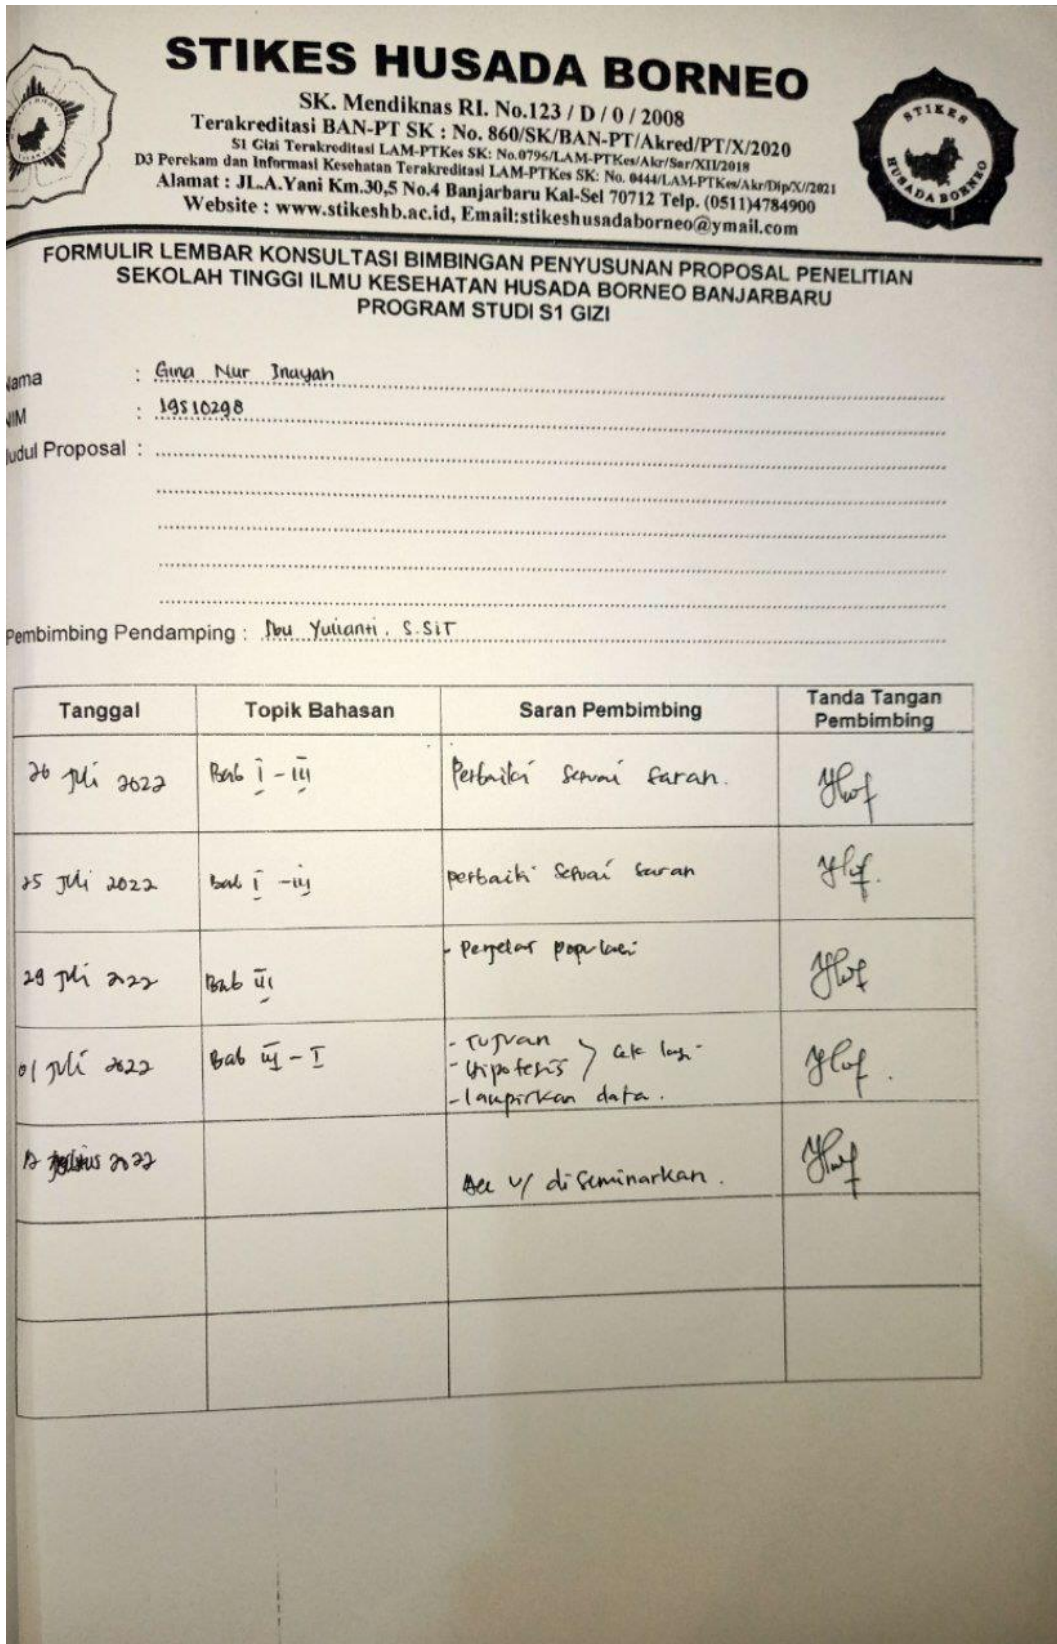 STIKES HUSADA BORNEO
SK. Mendiknas RI. No.123 / D / 0 / 2008
Terakreditasi BAN-PT SK : No. 860/SK/BAN-PT/Akred/PT/X/2020
S1 Gizi Terakreditasi LAM-PTKes SK: No.0796/LAM-PTKes/Akr/Sar/XII/2018
D3 Perekam dan Informasi Kesehatan Terakreditasi LAM-PTKes SK: No. 0444/LAM-PTKes/Akr/Dip/X/2021
Alamat : JL.A.Yani Km.30,5 No.4 Banjarbaru Kal-Sel 70712 Telp. (0511)4784900
Website : www.stikeshb.ac.id, Email:stikeshusadaborneo@ymail.com
STIKES
HUSADA BORNEO
FORMULIR LEMBAR KONSULTASI BIMBINGAN PENYUSUNAN PROPOSAL PENELITIAN
SEKOLAH TINGGI ILMU KESEHATAN HUSADA BORNEO BANJARBARU
PROGRAM STUDI S1 GIZI
Nama : Gina Nur Inayah
NIM : 19S10298
Judul Proposal :
Pembimbing Pendamping : Ibu Yulianti. S.SiT
Tanggal Topik Bahasan Saran Pembimbing Tanda Tangan Pembimbing
Juli 2022 Bab I - III Perbaiki sesuai saran.
25 Juli 2022 Bab I - III perbaiki sesuai saran
29 Juli 2022 Bab III - Perjelas populasi
01 Juli 2022 Bab III - I - Tujuan
- Hipotesis } cek lagi
- lampirkan data.
2022 Acc u/ diseminarkan.